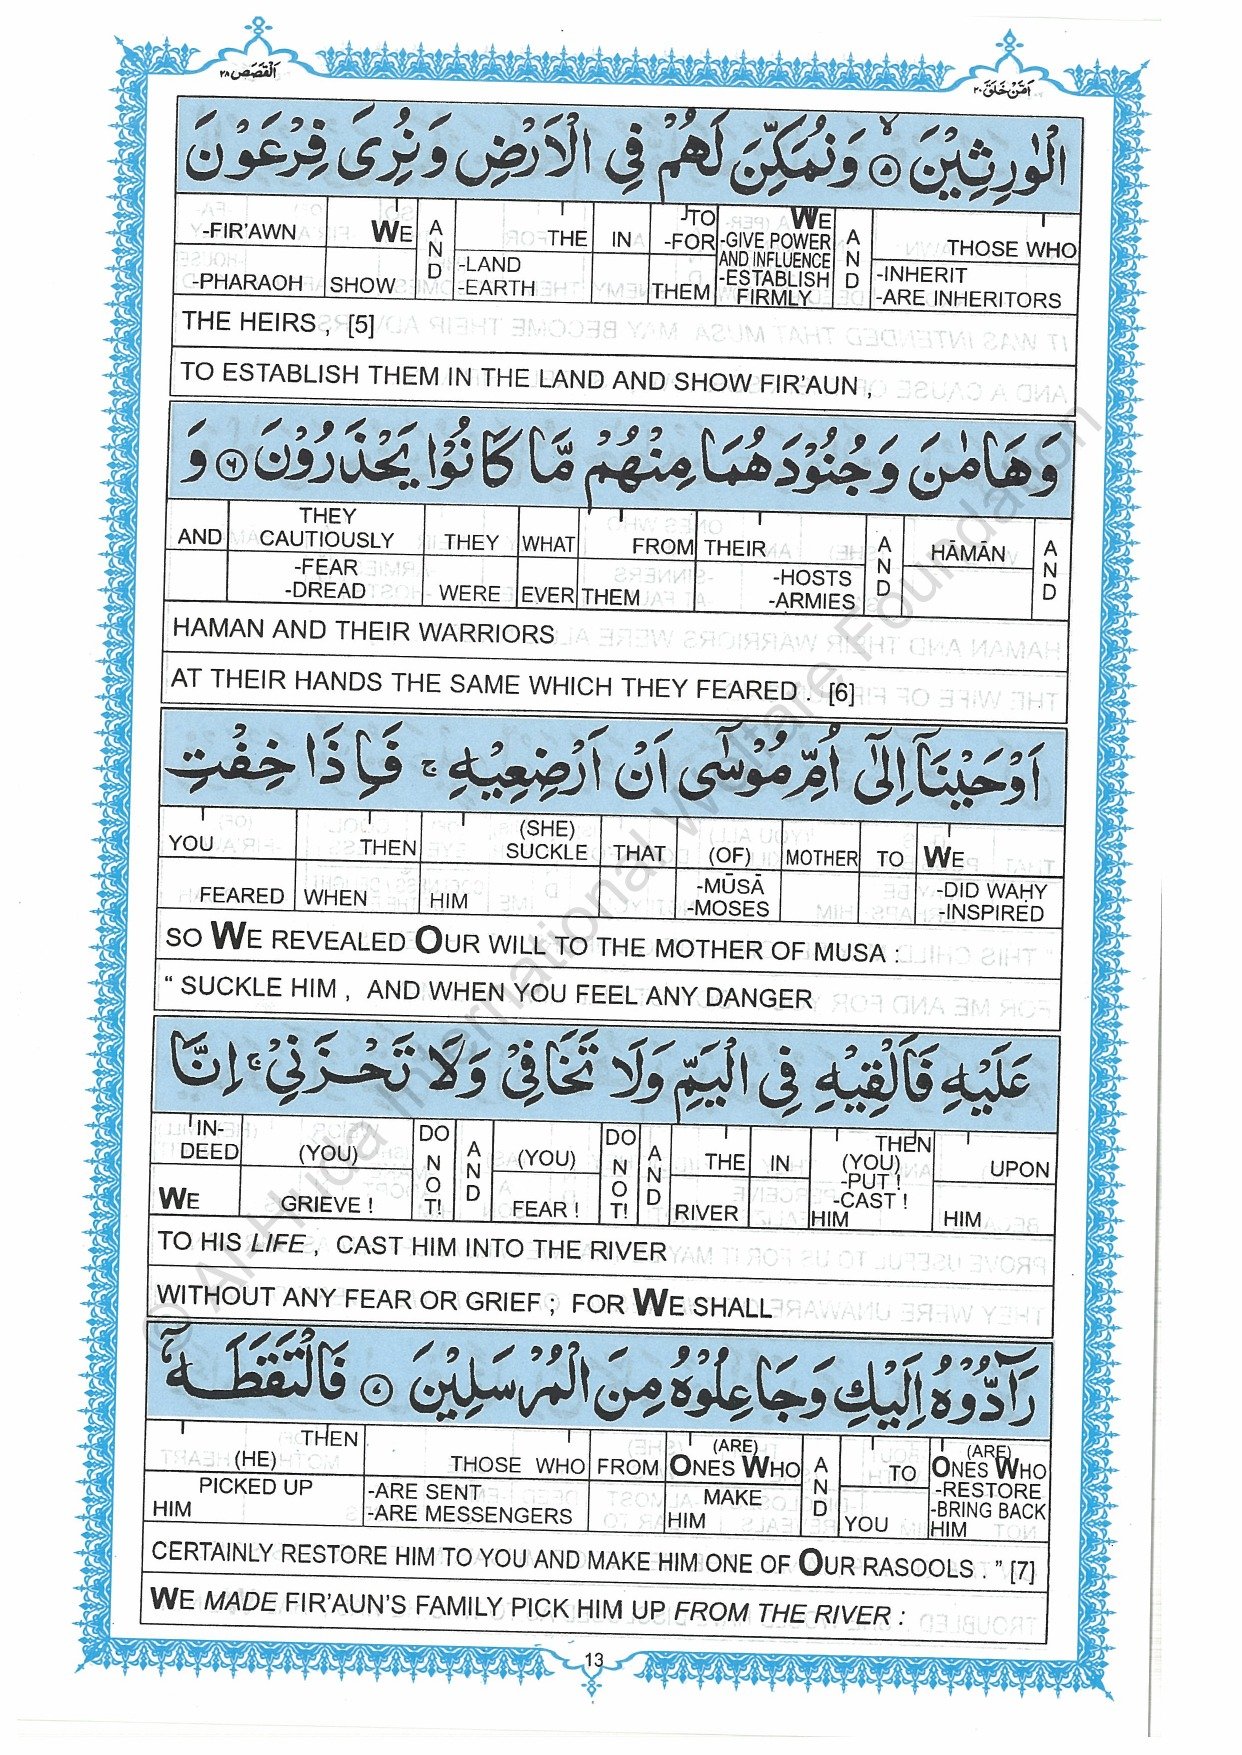 اَلْقَصَص ٢٨
اَمَّنْ خَلَقَ ٢٠
الْوٰرِثِيْنَ ۙ﴿٥﴾ وَنُمَكِّنَ لَهُمْ فِي الْاَرْضِ وَنُرِيَ فِرْعَوْنَ
-FIR'AWN WE AND THE IN TO -FOR WE -GIVE POWER AND INFLUENCE AND THOSE WHO
-PHARAOH SHOW -LAND -EARTH THEM -ESTABLISH FIRMLY -INHERIT -ARE INHERITORS
THE HEIRS , [5]
TO ESTABLISH THEM IN THE LAND AND SHOW FIR'AUN ,
وَهَامٰنَ وَجُنُوْدَهُمَا مِنْهُمْ مَّا كَانُوْا يَحْذَرُوْنَ ﴿٦﴾ وَ
AND THEY CAUTIOUSLY THEY WHAT FROM THEIR AND HĀMĀN AND
-FEAR -DREAD WERE EVER THEM -HOSTS -ARMIES
HAMAN AND THEIR WARRIORS
AT THEIR HANDS THE SAME WHICH THEY FEARED . [6]
اَوْحَيْنَآ اِلٰٓى اُمِّ مُوْسٰٓى اَنْ اَرْضِعِيْهِ ۚ فَاِذَا خِفْتِ
YOU THEN (SHE) SUCKLE THAT (OF) MOTHER TO WE
FEARED WHEN HIM -MŪSĀ -MOSES -DID WAḤY -INSPIRED
SO WE REVEALED OUR WILL TO THE MOTHER OF MUSA :
" SUCKLE HIM , AND WHEN YOU FEEL ANY DANGER
عَلَيْهِ فَاَلْقِيْهِ فِي الْيَمِّ وَلَا تَخَافِيْ وَلَا تَحْزَنِيْ ۚ اِنَّا
IN-DEED (YOU) DO NOT! AND (YOU) DO NOT! AND THE IN THEN (YOU) -PUT ! -CAST ! UPON
WE GRIEVE ! FEAR ! RIVER HIM HIM
TO HIS LIFE , CAST HIM INTO THE RIVER
WITHOUT ANY FEAR OR GRIEF ; FOR WE SHALL
رَآدُّوْهُ اِلَيْكِ وَجَاعِلُوْهُ مِنَ الْمُرْسَلِيْنَ ﴿٧﴾ فَالْتَقَطَهٗٓ
THEN (HE) THOSE WHO FROM (ARE) ONES WHO AND TO (ARE) ONES WHO
PICKED UP HIM -ARE SENT -ARE MESSENGERS MAKE HIM YOU -RESTORE -BRING BACK HIM
CERTAINLY RESTORE HIM TO YOU AND MAKE HIM ONE OF OUR RASOOLS . " [7]
WE MADE FIR'AUN'S FAMILY PICK HIM UP FROM THE RIVER :
13
© Al-Huda International Welfare Foundation